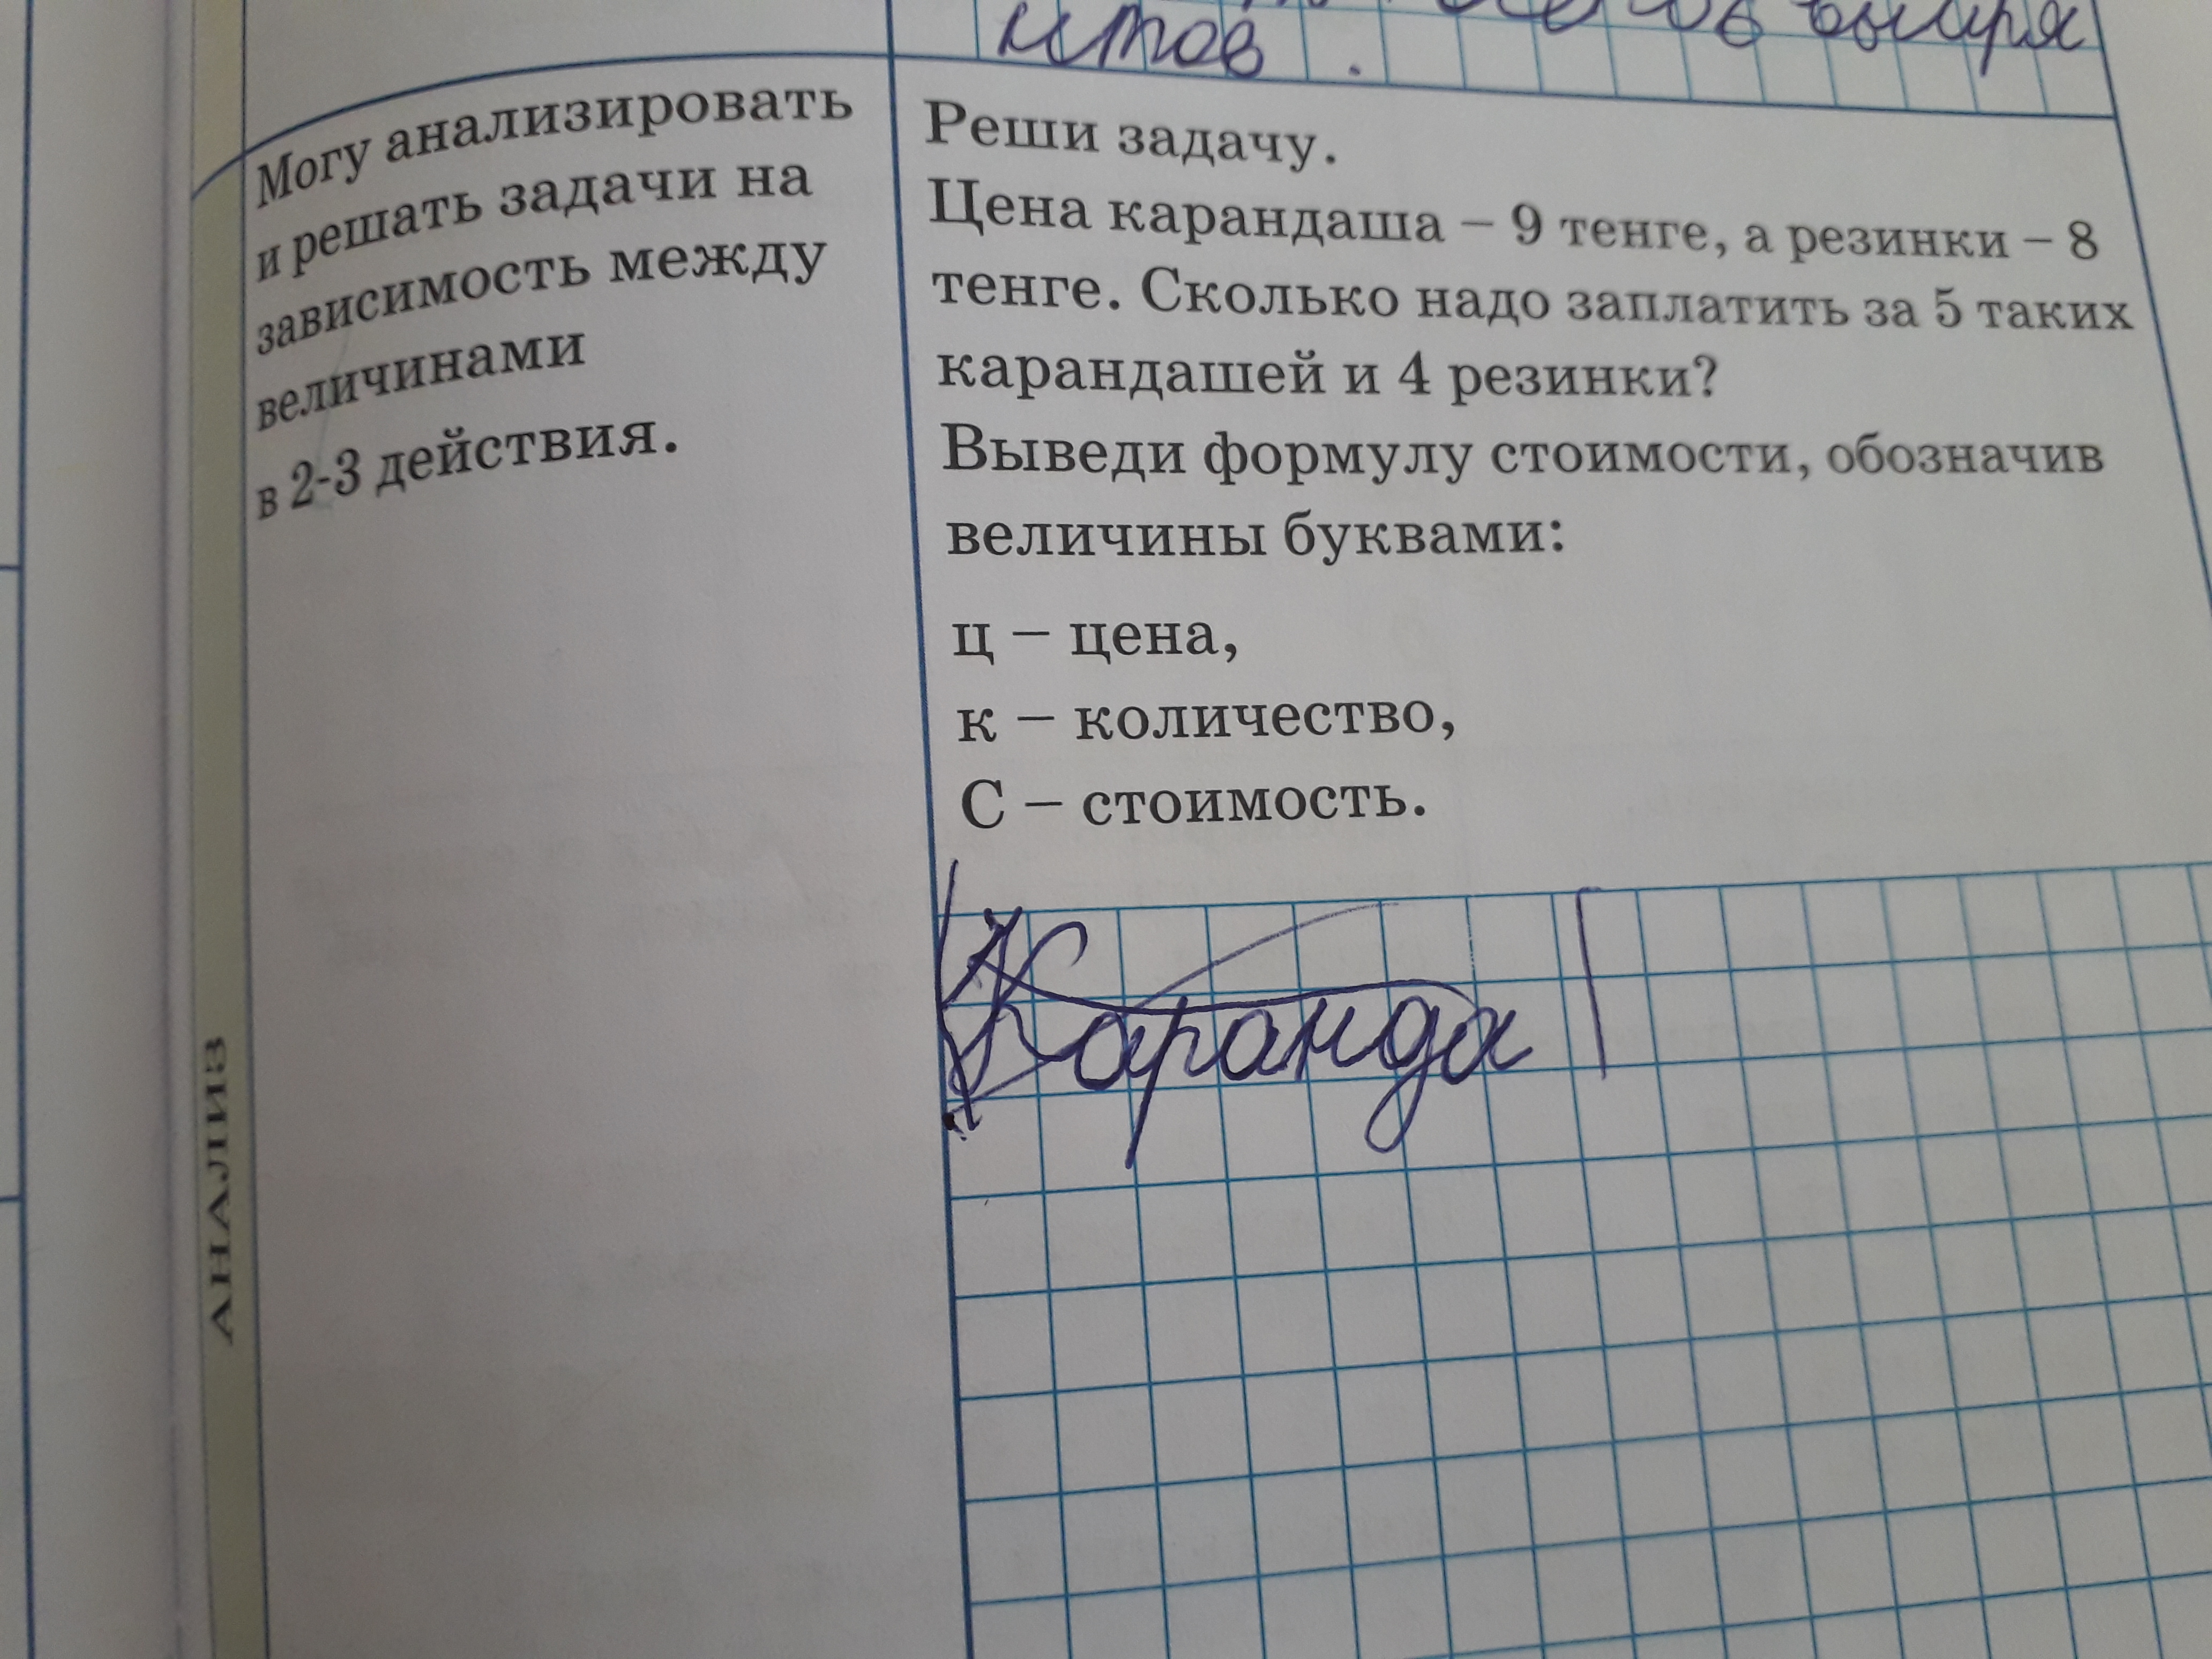 итов .
Могу анализировать
и решать задачи на
зависимость между
величинами
в 2-3 действия.
Реши задачу.
Цена карандаша – 9 тенге, а резинки – 8
тенге. Сколько надо заплатить за 5 таких
карандашей и 4 резинки?
Выведи формулу стоимости, обозначив
величины буквами:
ц – цена,
к – количество,
С – стоимость.
Каранда
АНАЛИЗ